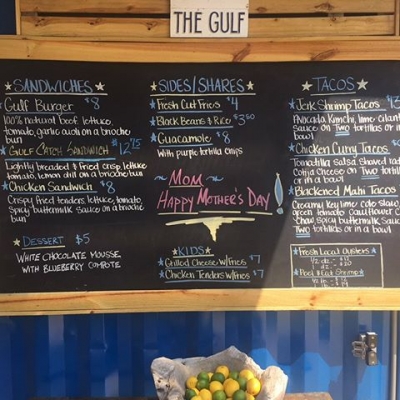 THE GULF
SANDWICHES
Gulf Burger $8
100% natural beef, lettuce,
tomato, garlic aioli on a brioche
bun
Gulf Catch Sandwich $12.75
Lightly breaded & fried crisp lettuce
tomato, lemon dill on a brioche bun
Chicken Sandwich $8
Crispy fried tenders, lettuce, tomato,
spicy buttermilk sauce on a brioche
bun
DESSERT $5
WHITE CHOCOLATE MOUSSE
WITH BLUEBERRY COMPOTE
SIDES/SHARES
Fresh Cut Fries $4
Black Beans & Rice $3.50
Guacamole $8
with purple tortilla chips
~ MOM ~
HAPPY MOTHER'S DAY!
KIDS
Grilled Cheese w/Fries $7
Chicken Tenders w/Fries $7
TACOS
Jerk Shrimp Tacos $13
Avocado, Kimchi, lime cilantro
sauce on Two tortillas or in a
bowl
Chicken Curry Tacos
Tomatilla Salsa, Shaved rad
Cotija Cheese on Two tortillas
or in a bowl
Blackened Mahi Tacos
Creamy Key lime cole slaw,
green tomato Cauliflower C
Chow, spicy buttermilk sauce
Two tortillas or in a bowl
Fresh Local Oysters
1/2 dz -
1 dz - $20
Peel & Eat Shrimp